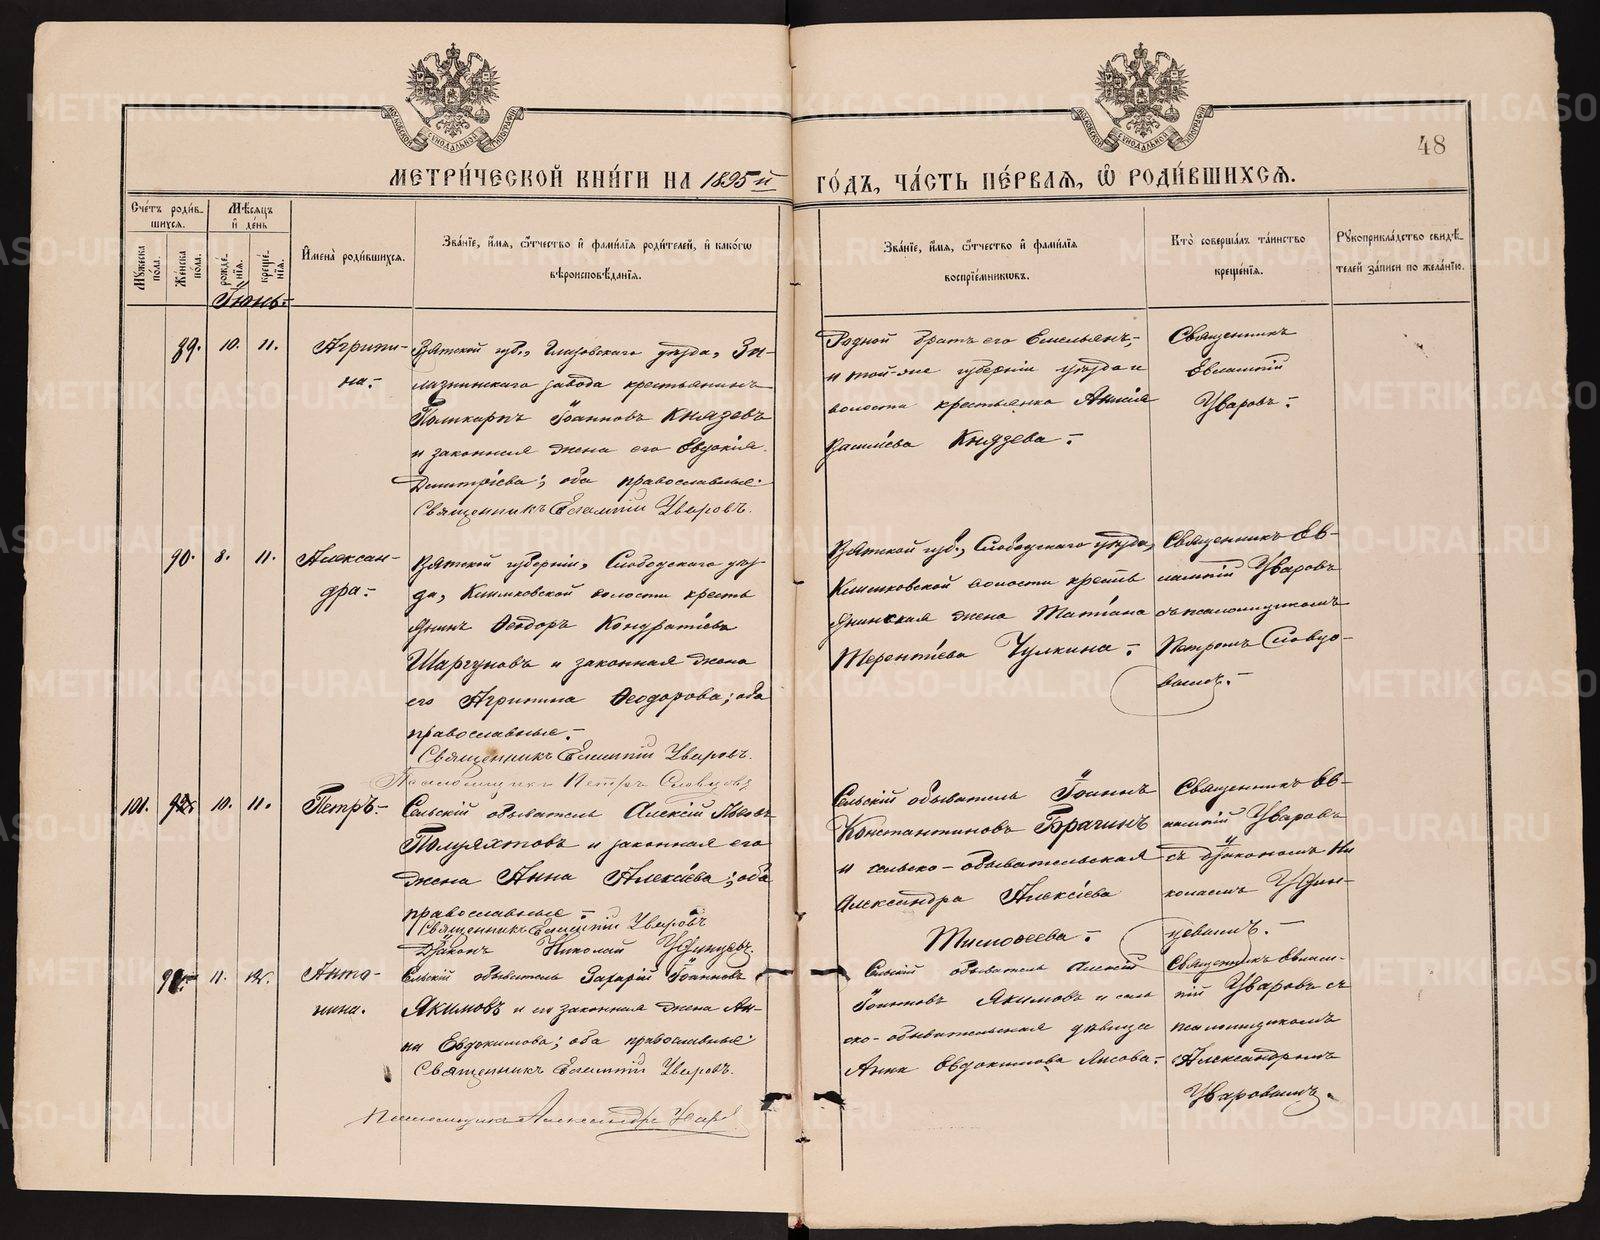 48
МЕТРИ́ЧЕСКОЙ КНИ́ГИ НА 1895й ГО́ДЪ, ЧА́СТЬ ПЕ́РВАЯ, Ѿ РОДИ́ВШИХСѦ.
Сче́тъ роди́в-
шихсѧ.
Мꙋжеска по́ла.
Же́нска по́ла.
Мѣ́сѧцъ
и҆ де́нь
рожде́-
нїѧ.
креще́-
нїѧ.
И҆мена̀ роди́вшихсѧ.
Зва́нїе, и҆́мѧ, ѻ҆́тчество и҆ фами́лїѧ роди́телей, и҆ како́гѡ
вѣроисповѣ́данїѧ.
Зва́нїе, и҆́мѧ, ѻ҆́тчество и҆ фами́лїѧ
воспрїе́мникѡвъ.
Кто̀ соверша́лъ та́инство
креще́нїѧ.
Рꙋкоприкла́дство свидѣ́-
телей за́писи по жела́нїю.
Іюнь.
89. 10. 11. Агрипи-
на.
Вятской губ., Глазовскаго уѣзда, За-
лазнинскаго завода крестьянинъ
Поликарпъ Іоанновъ Князевъ
и законная жена его Евдокія
Димитріева; оба православные.
Священникъ Евлампій Уваровъ.
Родной братъ его Емельянъ,
и той-же губерніи уѣзда и
волости крестьянка Анисія
Василіева Князева.
Священникъ
Евлампій
Уваровъ.
90. 8. 11. Алексан-
дра.
Вятской губерніи, Слободскаго уѣз-
да, Климковской волости кресть
янинъ Ѳеодоръ Кондратіевъ
Шаргуновъ и законная жена
его Агрипина Ѳеодорова; оба
православные.
Священникъ Евлампій Уваровъ.
Псаломщикъ Петръ Словцовъ
Вятской губ., Слободскаго уѣзда,
Климковской волости кресть
янинская жена Татіана
Терентіева Чулкина.
Священникъ Ев-
лампій Уваровъ
съ псаломщикомъ
Петромъ Словцо-
вымъ.
101. 10. 11. Петръ.
Сельскій обыватель Алексій Львовъ
Полуяхтовъ и законная его
жена Анна Алексіева; оба
православные
Священникъ Евлампій Уваровъ
Діаконъ Николай Удинцевъ.
Сельскій обыватель Іоаннъ
Константиновъ Брагинъ
и сельско-обывательская
Александра Алексіева
Тимоѳеева.
Священникъ Ев-
лампій Уваровъ
съ діакономъ Ни
колаемъ Удин-
цевымъ.
11. 12. Анто-
нина.
Сельскій обыватель Захарій Іоанновъ
Якимовъ и законная жена Ан-
на Евдокимова; оба православные.
Священникъ Евлампій Уваровъ.
Псаломщикъ Александръ Уваровъ
Сельскій обыватель Алексій
Іоанновъ Якимовъ и сель
ско-обывательская дѣвица
Анна Евдокимова Лисова.
Священникъ Евлам-
пій Уваровъ съ
псаломщикомъ
Александромъ
Уваровымъ.